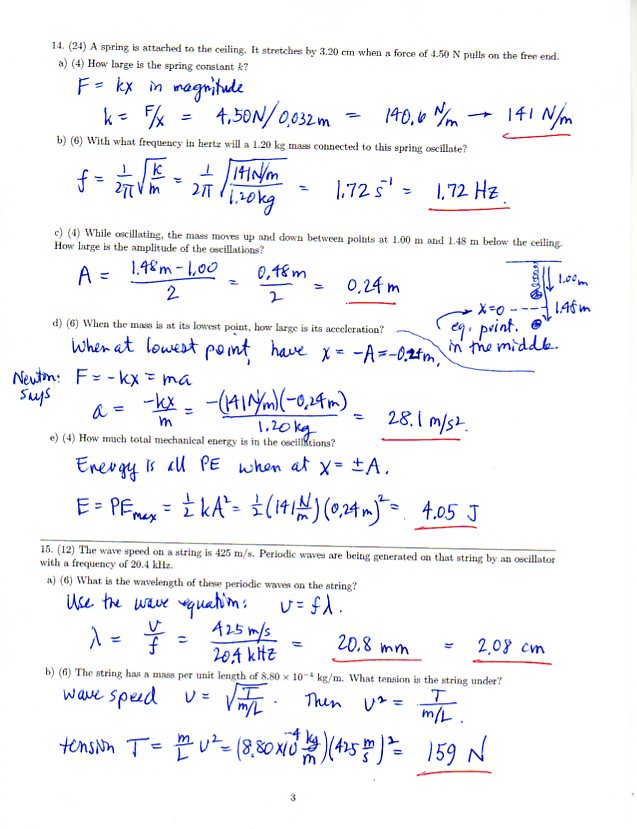 14. (24) A spring is attached to the ceiling. It stretches by 3.20 cm when a force of 4.50 N pulls on the free end.
a) (4) How large is the spring constant k?
F = kx in magnitude
k = F/x = 4.50N/0.032m = 140.6 N/m → 141 N/m
b) (6) With what frequency in hertz will a 1.20 kg mass connected to this spring oscillate?
f = 1/2π √(k/m) = 1/2π √(141N/m / 1.20kg) = 1.72 s⁻¹ = 1.72 Hz.
c) (4) While oscillating, the mass moves up and down between points at 1.00 m and 1.48 m below the ceiling.
How large is the amplitude of the oscillations?
A = (1.48m-1.00)/2 = 0.48m/2 = 0.24m
1.00m
1.48m
→ x=0
eq. point.
in the middle.
d) (6) When the mass is at its lowest point, how large is its acceleration?
When at lowest point, have x = -A = -0.24m,
Newton says: F = -kx = ma
a = -kx/m = -(141N/m)(-0.24m)/1.20kg = 28.1 m/s².
e) (4) How much total mechanical energy is in the oscillations?
Energy is all PE when at x = ±A.
E = PEmax = ½kA² = ½(141 N/m)(0.24m)² = 4.05 J
15. (12) The wave speed on a string is 425 m/s. Periodic waves are being generated on that string by an oscillator
with a frequency of 20.4 kHz.
a) (6) What is the wavelength of these periodic waves on the string?
Use the wave equation: v = fλ.
λ = v/f = 425 m/s / 20.4 kHz = 20.8 mm = 2.08 cm
b) (6) The string has a mass per unit length of 8.80 × 10⁻⁴ kg/m. What tension is the string under?
wave speed v = √(T / m/L). Then v² = T / m/L.
tension T = m/L v² = (8.80x10⁻⁴ kg/m)(425 m/s)² = 159 N
3